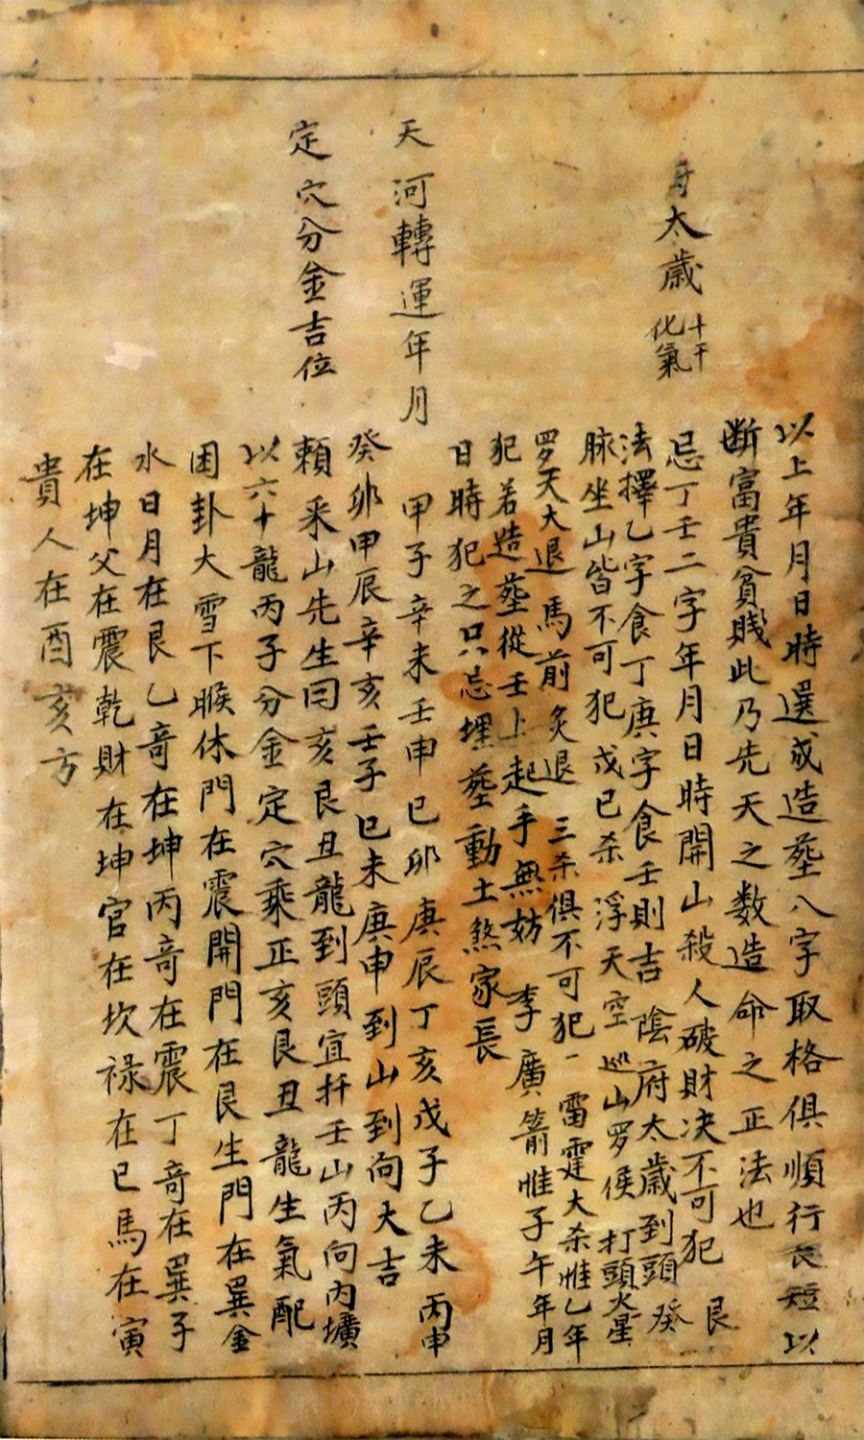 以上年月日時選成造塟八字取格俱順行長短以
断富貴貧賤此乃先天之数造命之正法也
府太歲十干化氣
忌丁壬二字年月日時開山殺人破財决不可犯 艮
法擇乙字食丁庚字食壬則吉 陰府太歲到頭 癸
脉坐山皆不可犯 戊已杀 浮天空 巡山罗侯 打頭火星
罗天大退 馬前炙退 三杀俱不可犯一 雷霆大杀惟乙年
犯若造塟從壬上起手無妨 李廣箭惟子午年月
日時犯之只忌埋塟動土煞家長
天河轉運年月
甲子辛未壬申已卯庚辰丁亥戊子乙未丙申
癸卯甲辰辛亥壬子已未庚申到山到向大吉
定穴分金吉位
頼釆山先生曰亥艮丑龍到頭宜扦壬山丙向内壙
以六十龍丙子分金定穴乘正亥艮丑龍生氣配
困卦大雪下睺休門在震開門在艮生門在巽金
水日月在艮乙竒在坤丙竒在震丁竒在巽子
在坤父在震乾財在坤官在坎禄在已馬在寅
貴人在酉亥方